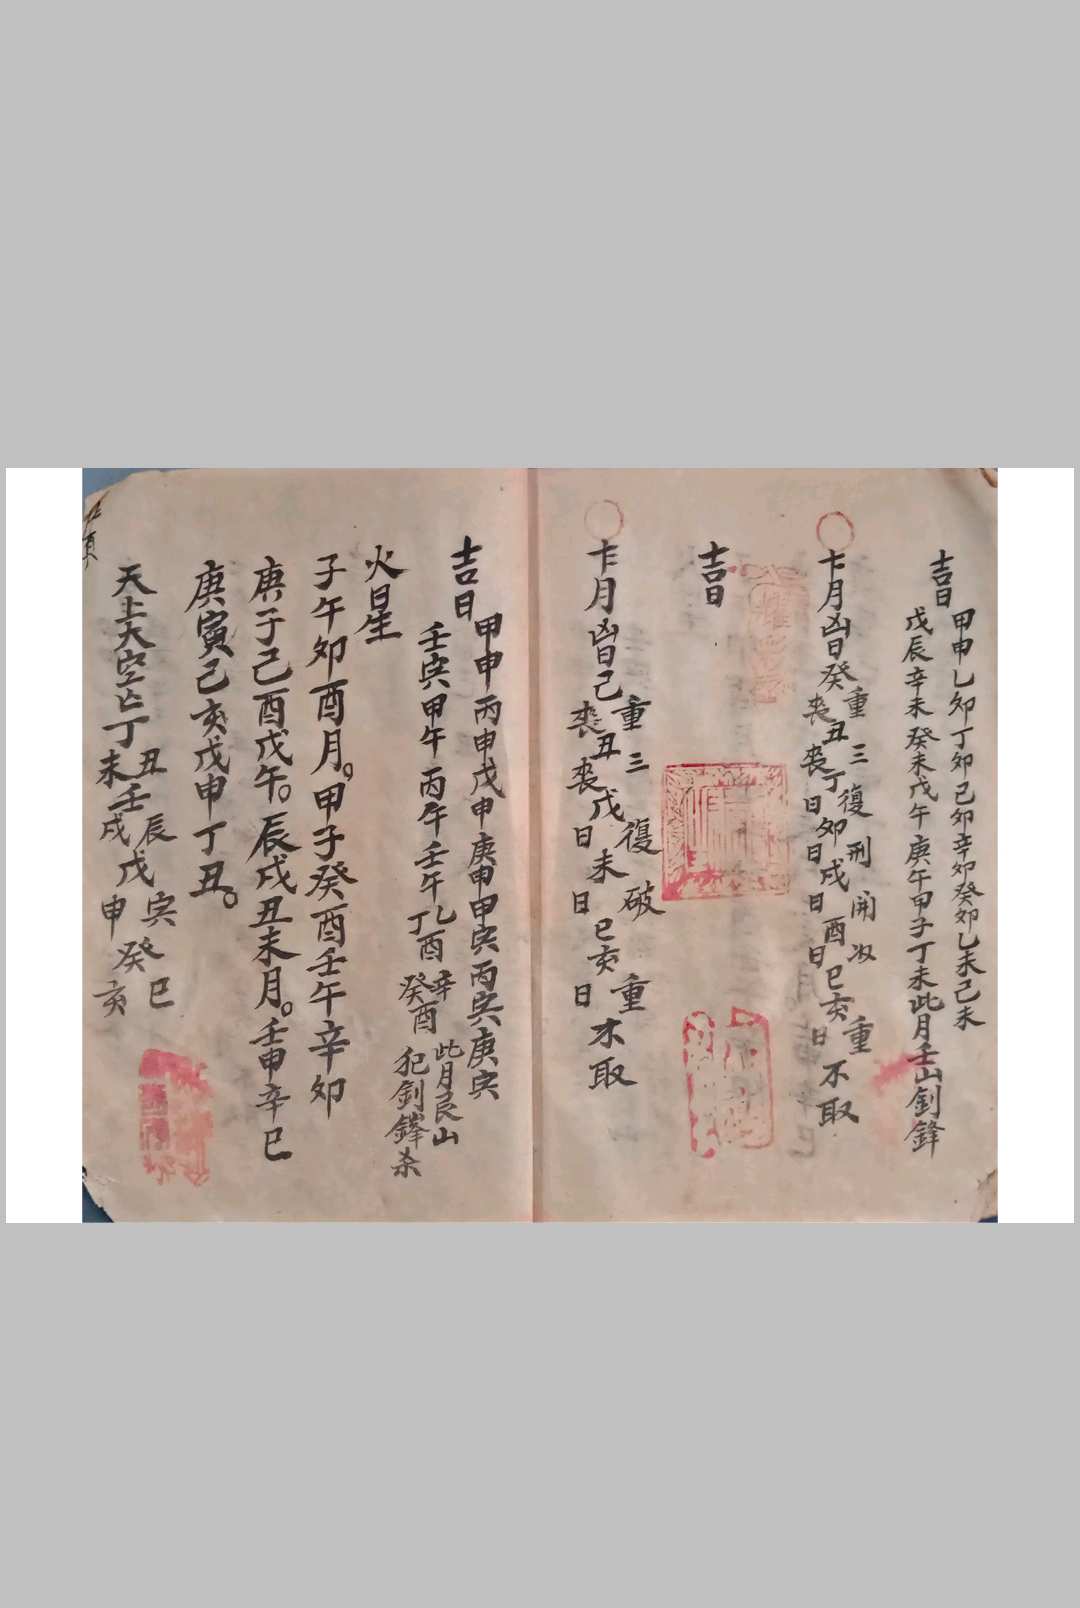 吉日
甲申乙卯丁卯己卯辛卯癸卯乙未己未
戊辰辛未癸未戊午庚午甲子丁未此月壬山釗鋒
重三復刑開 重
月凶日癸丑丁卯戌酉巳亥不取
喪喪日日日日日
吉日
重三復破重
月凶日己丑戊未巳亥不取
喪喪日日日
吉日
甲申丙申戊申庚申甲寅丙寅庚寅
壬寅甲午丙午壬午乙酉丁酉辛酉癸酉此月艮山犯釗鋒杀
火星
子午卯酉月。甲子癸酉壬午辛卯
庚子己酉戊午。辰戌丑未月。壬申辛巳
庚寅己亥戊申丁丑。
天上大空亡丁丑丁未壬辰壬戌戊寅戊申癸巳癸亥